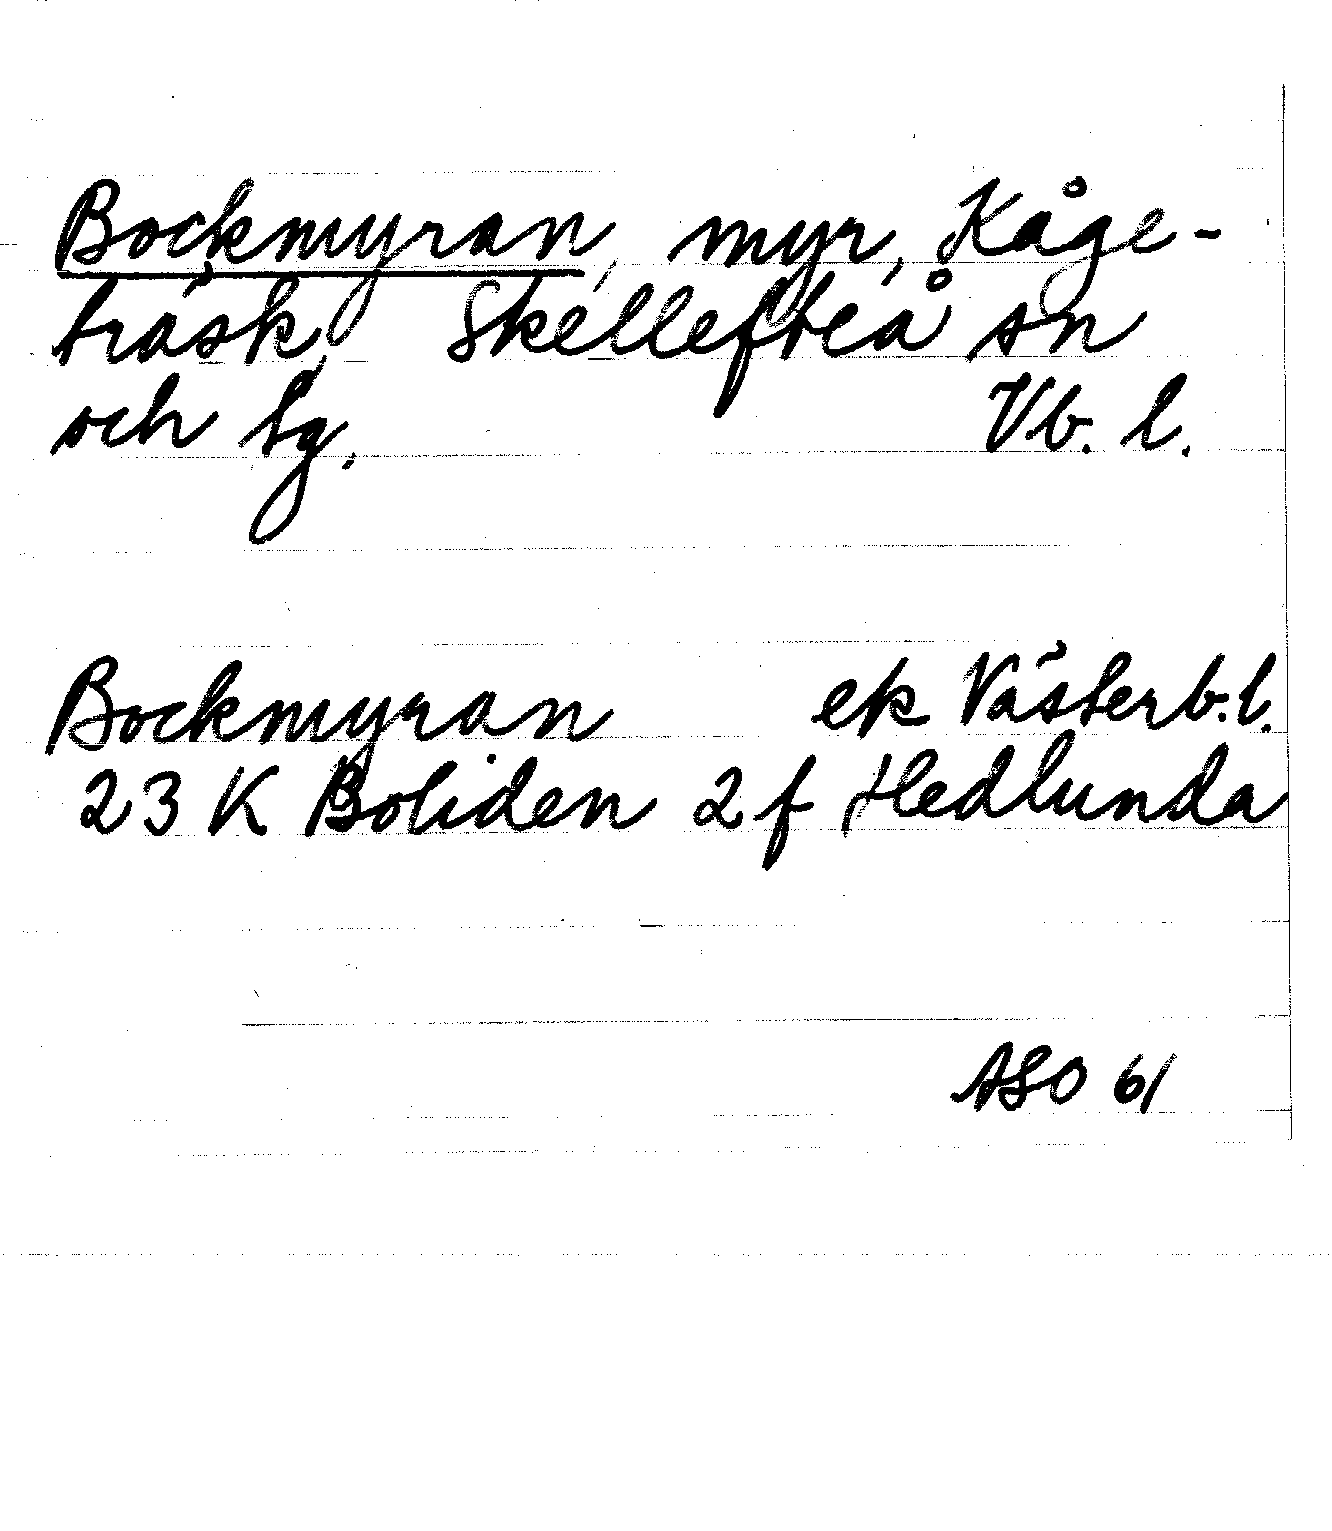 Bockmyran, myr, Kåge-
träsk, Skellefteå sn
och tg. Vb. l.
Bockmyran ek Västerb. l.
23 K Boliden 2 f Hedlunda
ASO 61